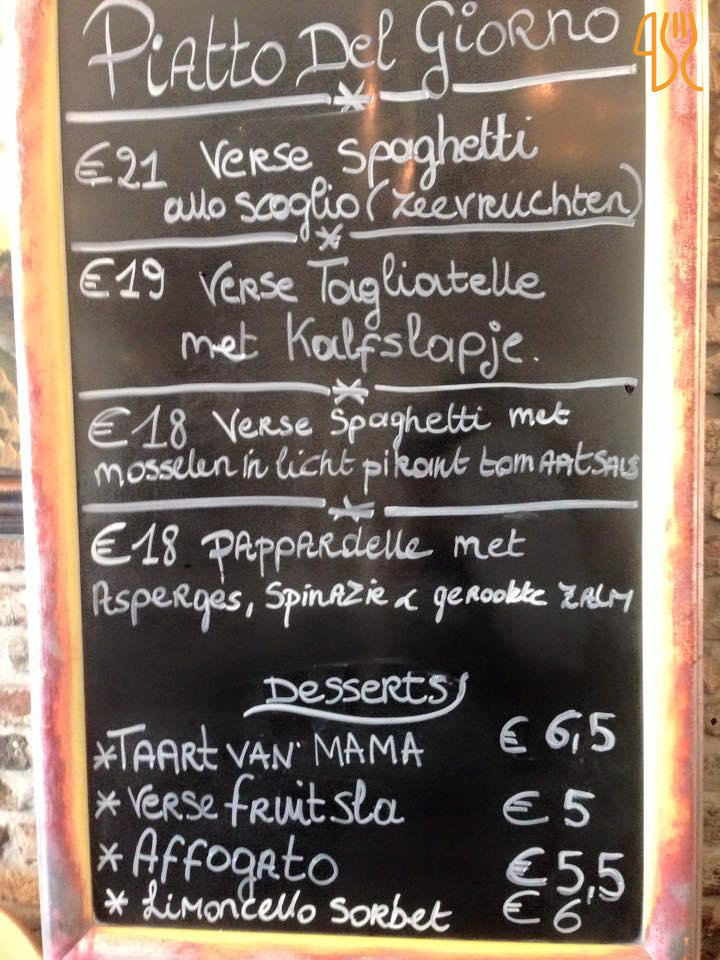 Piatto Del Giorno
€21 Verse Spaghetti
allo scoglio (zeevruchten)
€19 Verse Tagliatelle
met Kalfslapje.
€18 Verse Spaghetti met
mosselen in licht pikant tomAAtSAUS
€18 PAPPARdelle met
Asperges, SpinAZie & gerookte ZALM
Desserts
*TAARt VAN MAMA € 6,5
*Verse fruitsla € 5
*Affogato € 5,5
*Limoncello Sorbet € 6